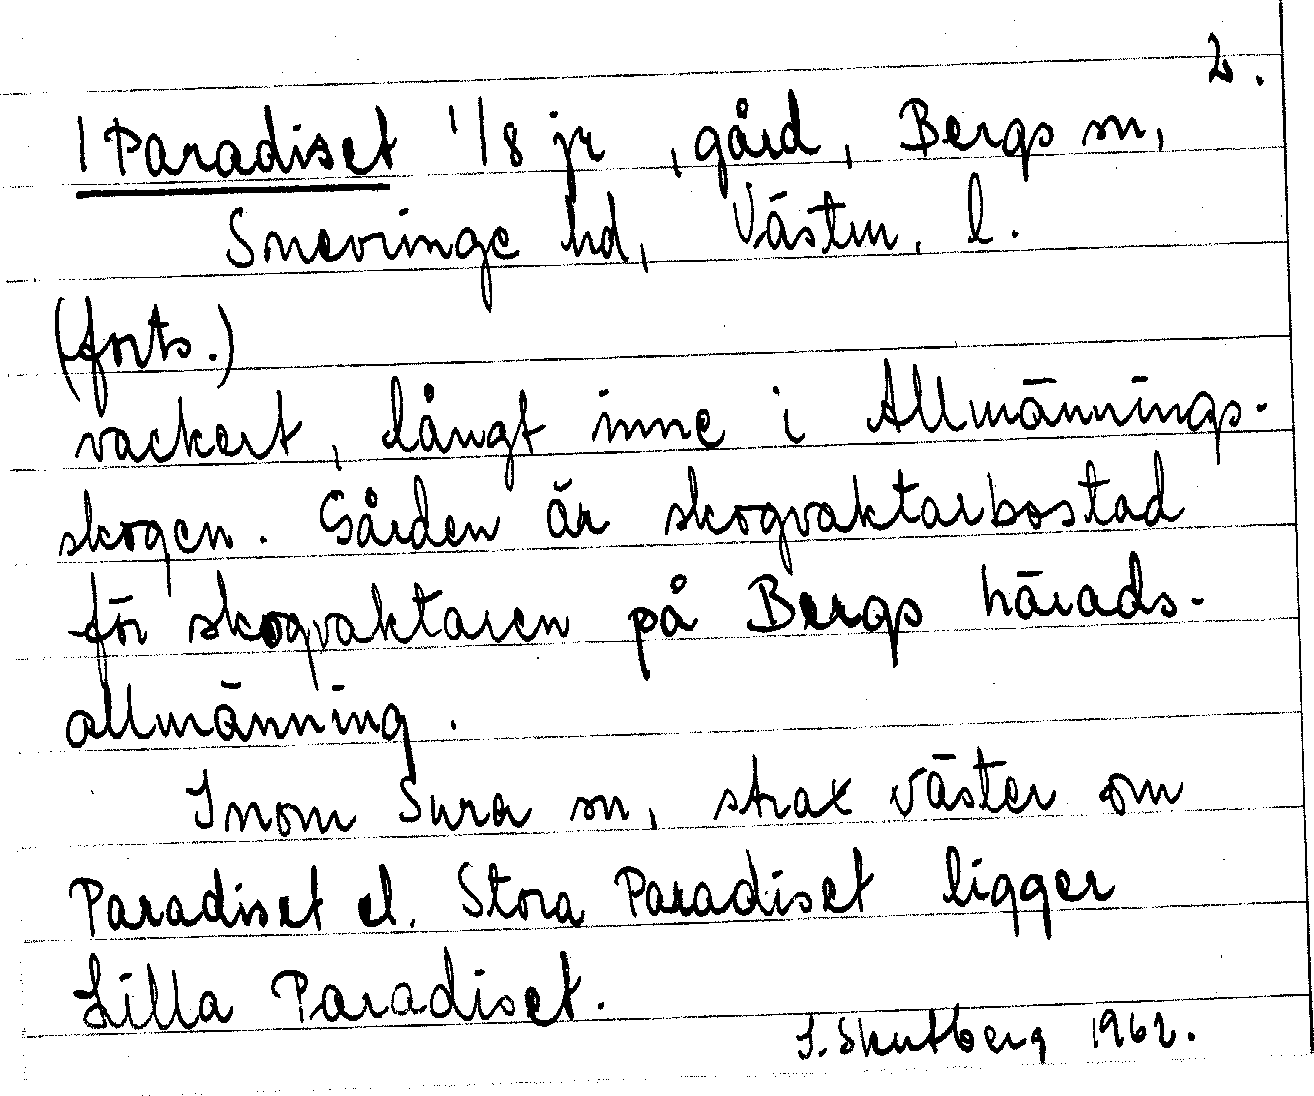 2.
1 Paradiset 1/8 jr, gård, Bergs sn,
Snevringe hd, Västm. l.
(forts.)
vackert, långt inne i Allmännings-
skogen. Gården är skogvaktarbostad
för skogvaktaren på Bergs härads-
allmänning.
Inom Sura sn, strax väster om
Paradiset el. Stora Paradiset ligger
Lilla Paradiset.
S. Skutberg 1962.